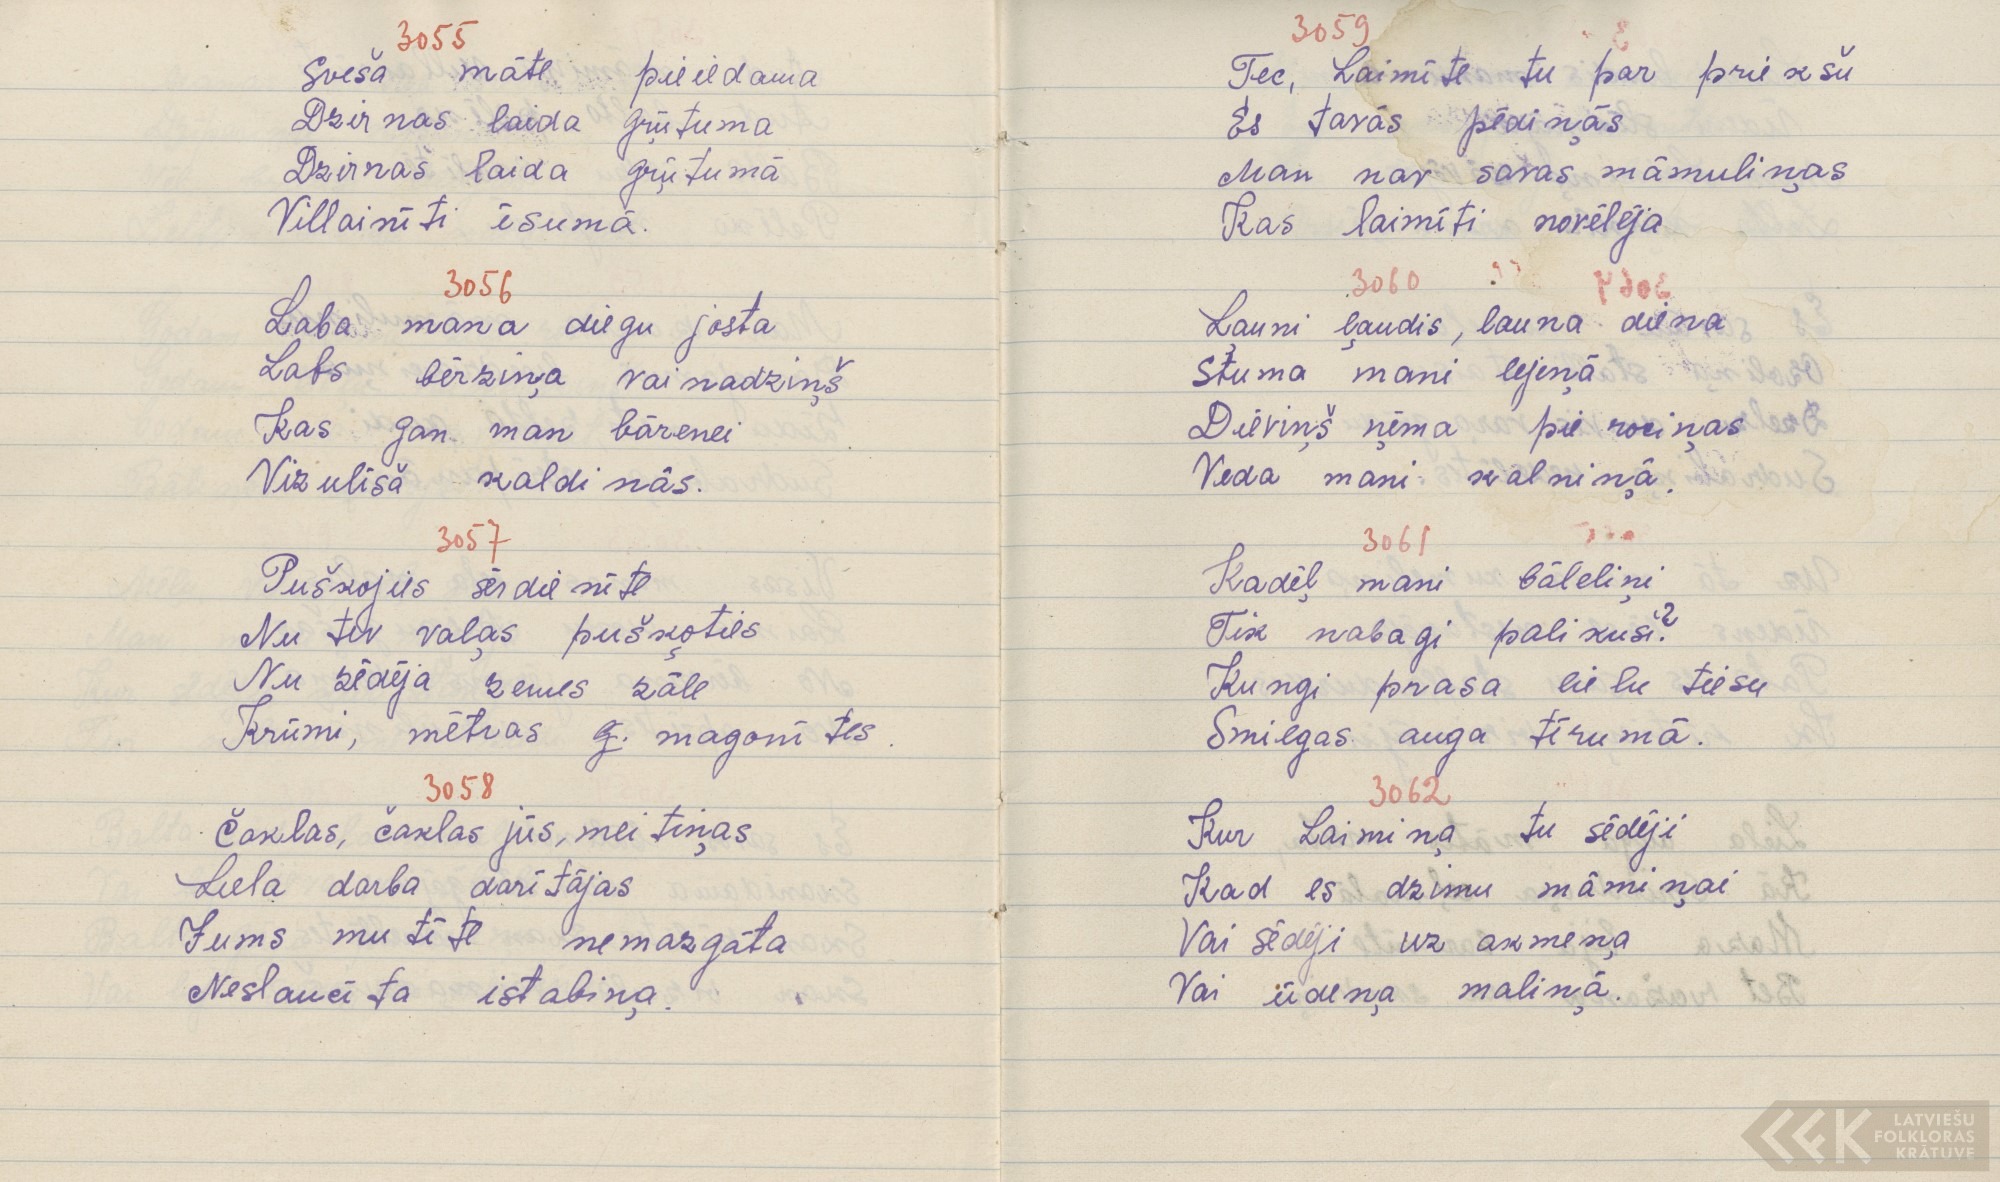 3055
Sveša māte pieiedama
Dzirnas laida grūtuma
Dzirnas laida grūtumā
Villainīti īsumā.
3056
Laba mana diegu josta
Labs bērziņa vainadziņš
Kas gan man bārenei
Vizulīšā kaldinās.
3057
Puškojies sērdienīte
Nu tev vaļas pušķoties
Nu zēdēja zemes zāle
Krūmi, mētras g. magonītes.
3058
Čaklas, čaklas jūs, meitiņas
Liela darba darītājas
Jums mutīte nemazgāta
Neslaucīta istabiņa.
3059
Tec, Laimīte tu par priekšu
Es tavās pēdiņās
Man nav savas māmuliņas
Kas laimīti novēlēja
3060
Ļauni ļaudis, launa diena
Stuma mani lejeņā
Dieviņš ņēma pie rociņas
Veda mani kalniņā.
3061
Kadēļ mani bāleliņi
Tik nabagi palikuši?
Kungi prasa lielu tiesu
Smilgas auga tīrumā.
3062
Kur Laimiņa tu sēdēji
Kad es dzimu māmiņai
Vai sēdēji uz akmeņa
Vai ūdeņa maliņā.
LATVIEŠU
FOLKLORAS
KRĀTUVE